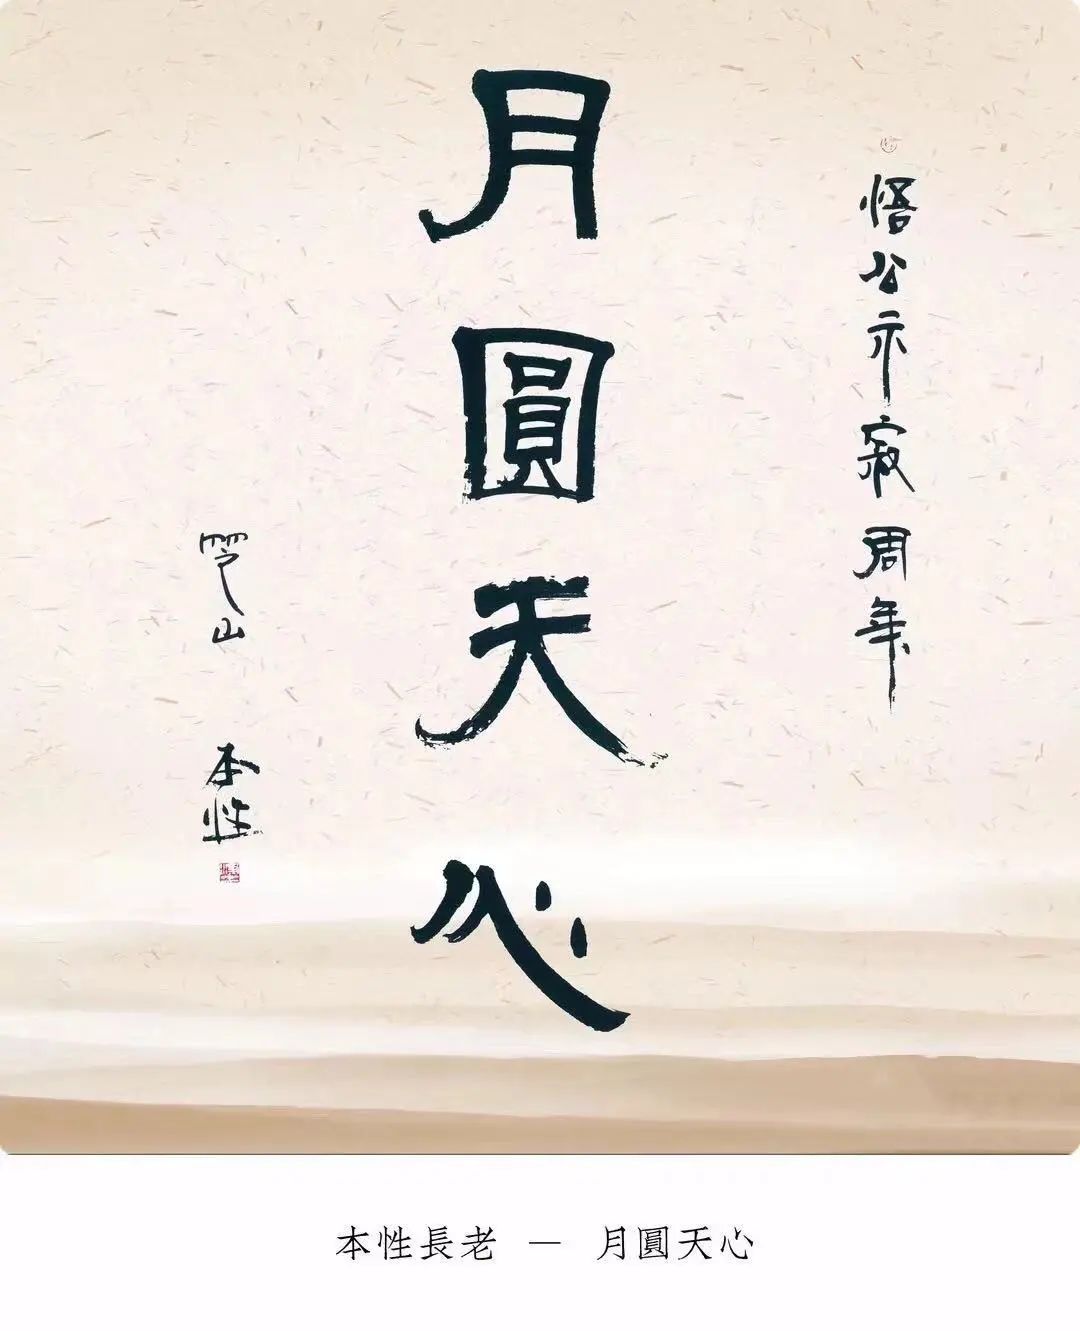 悟公示寂周年
月圓天心
雪山
本性
本性長老 — 月圓天心